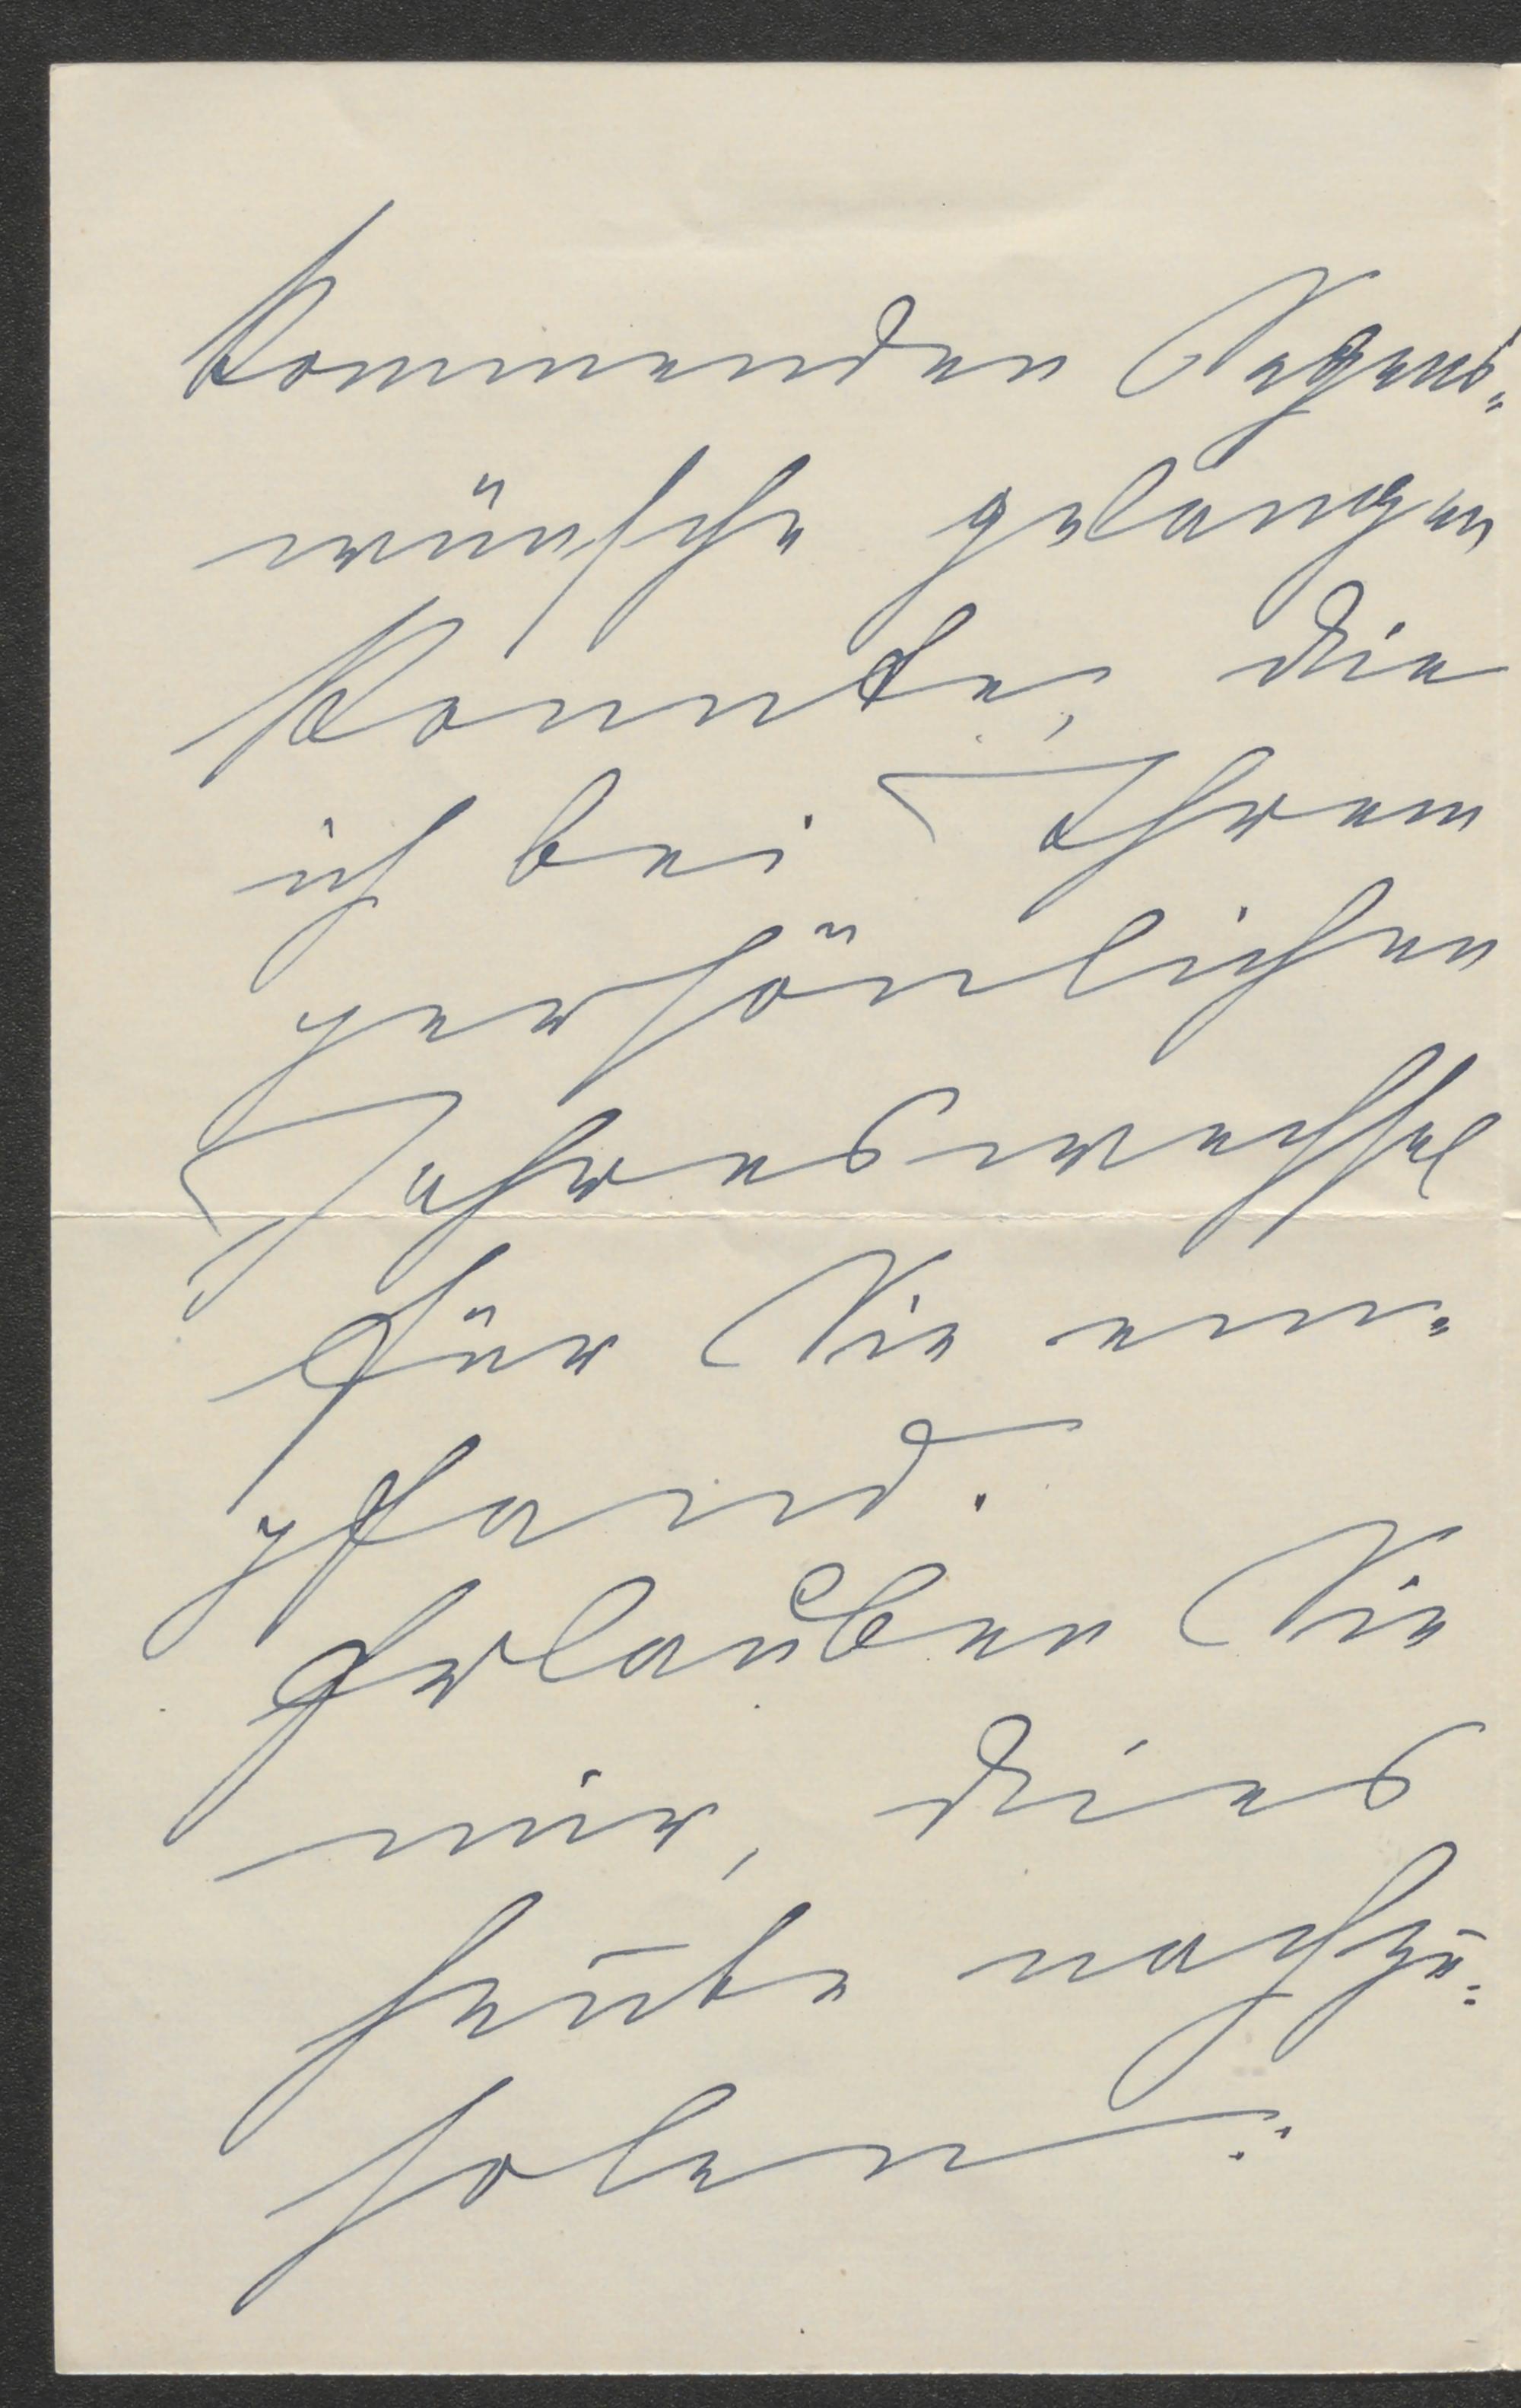 kommenden Segens-
wünsche gelangen
konnte, die
ich bei Ihrem
persönlichen
Jahreswechsel
für Sie em-
pfand.
Erlauben Sie
mir, dies
heute nachzu-
holen: